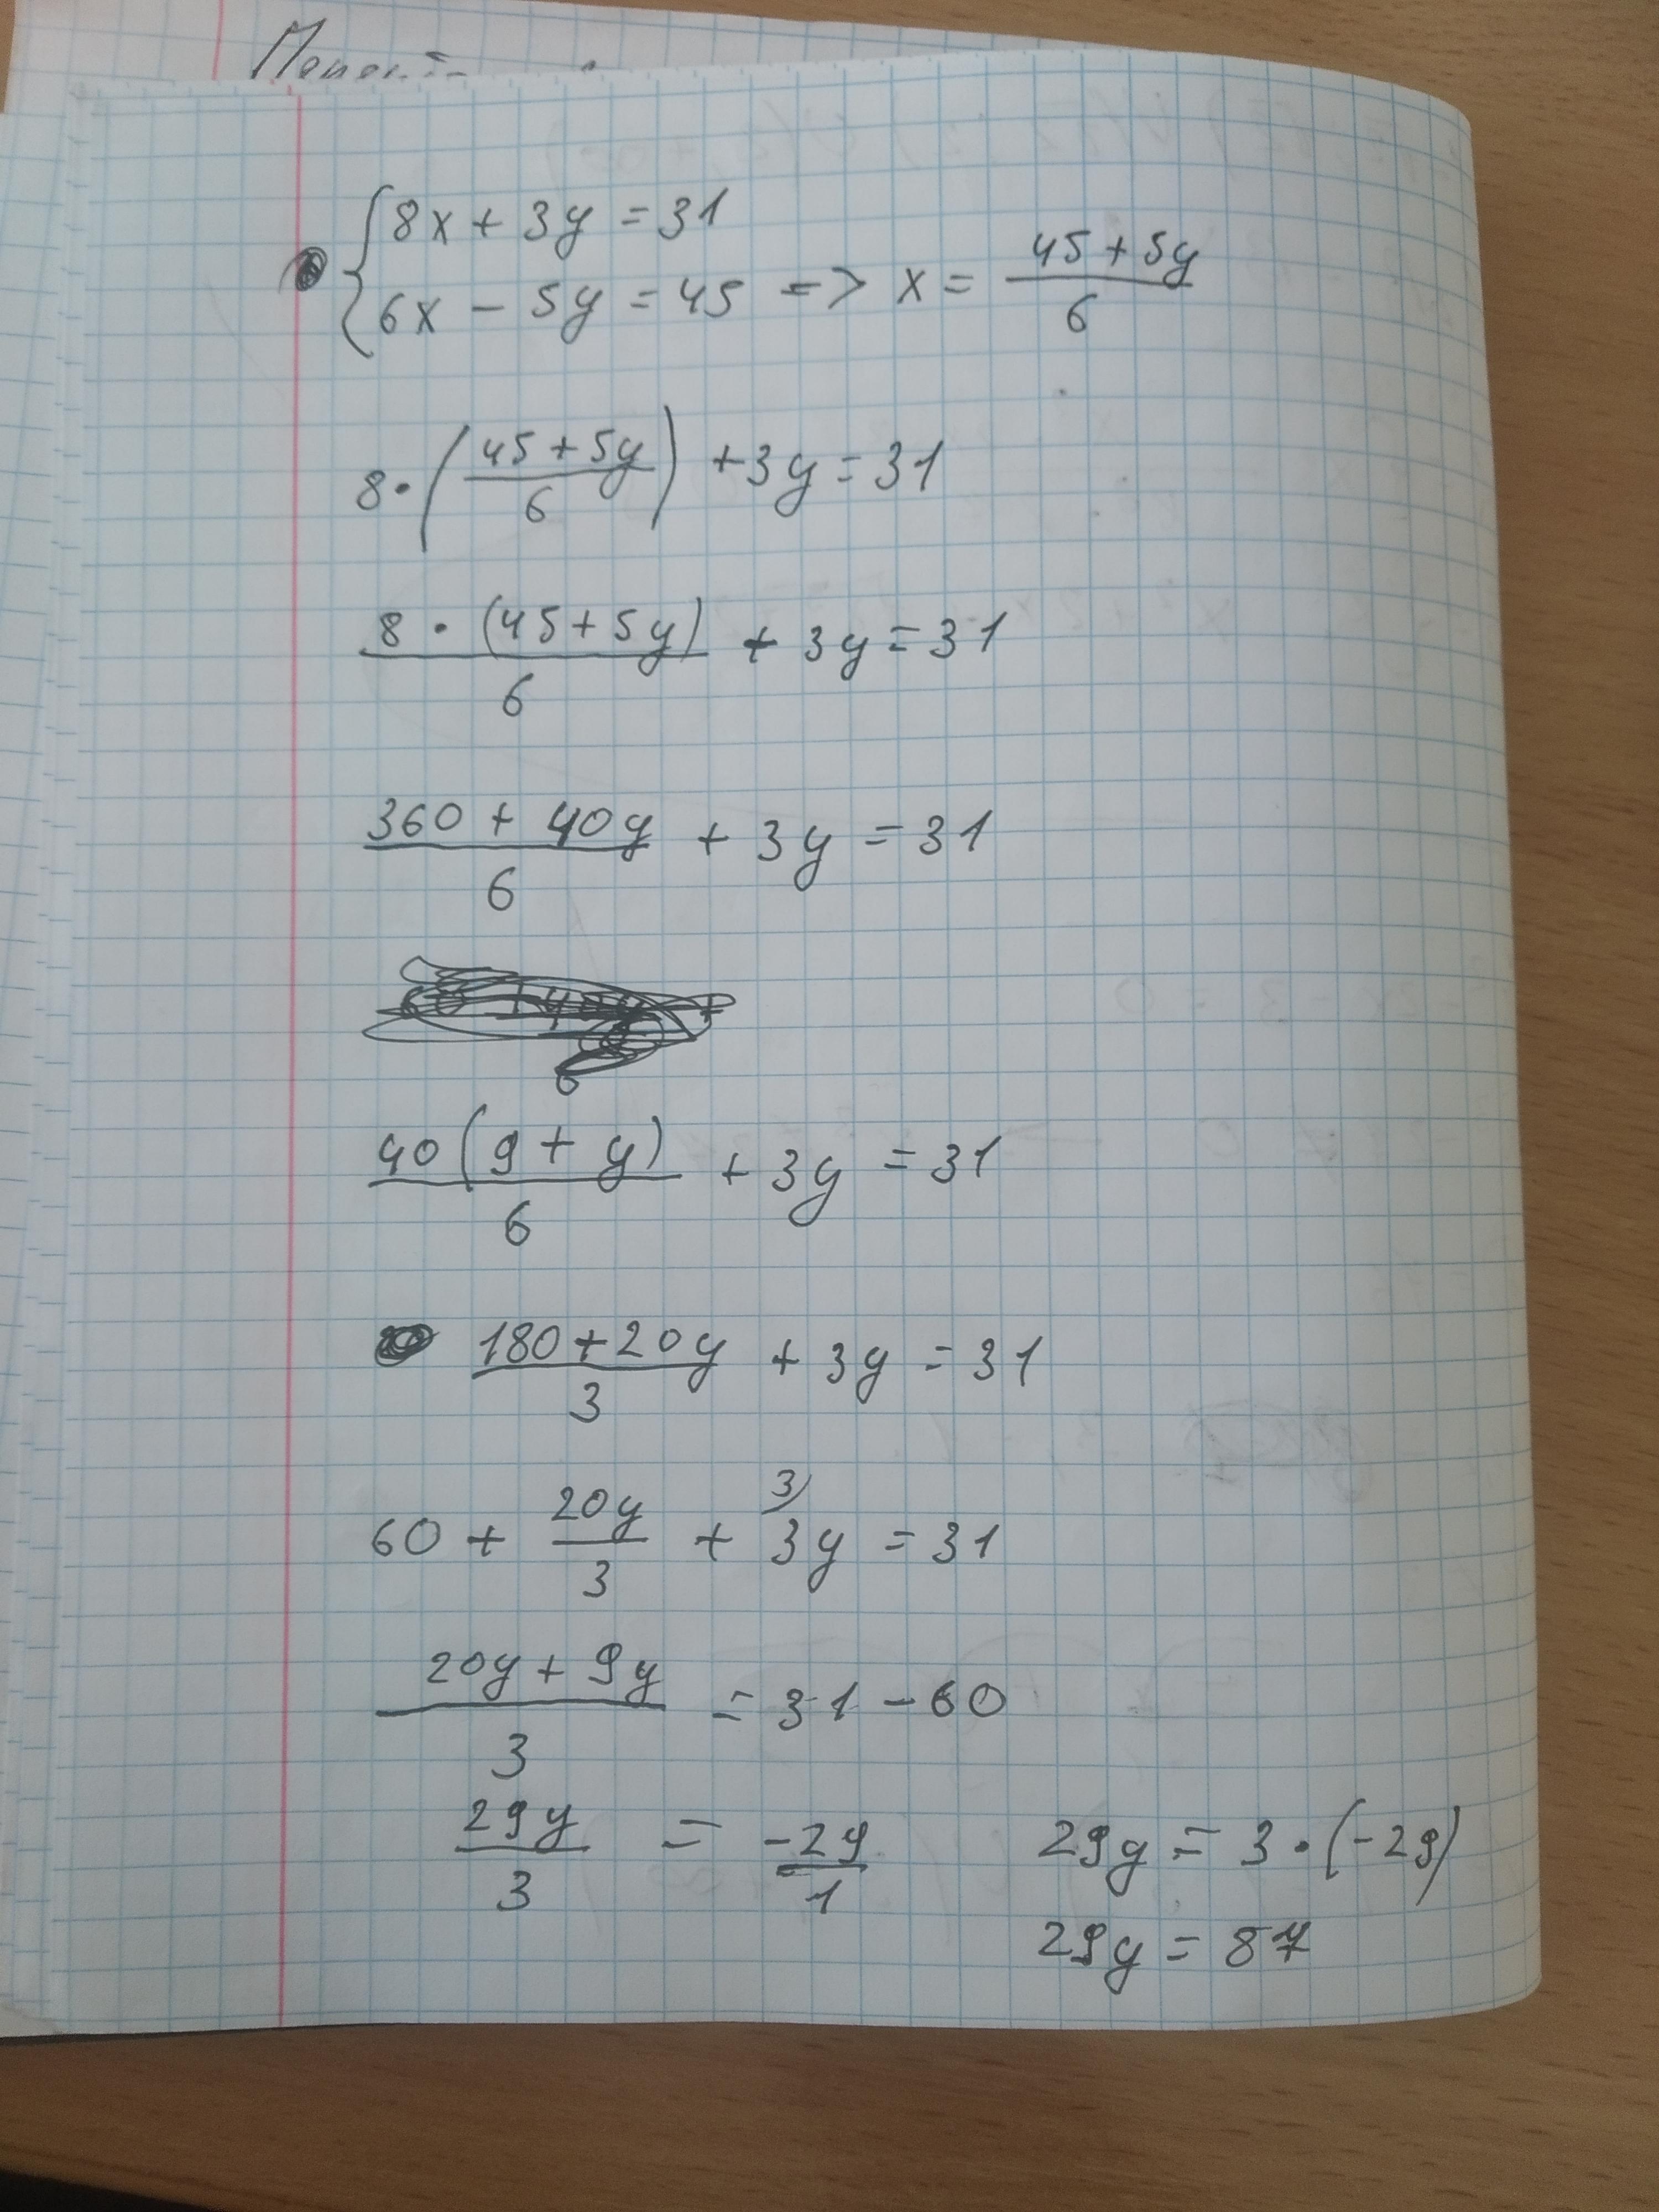 8x + 3y = 31
6x - 5y = 45 => x = (45 + 5y)/6
8 · ((45 + 5y)/6) + 3y = 31
(8 · (45 + 5y))/6 + 3y = 31
(360 + 40y)/6 + 3y = 31
(40(9 + y))/6 + 3y = 31
(180 + 20y)/3 + 3y = 31
60 + 20y/3 + 3) 3y = 31
(20y + 9y)/3 = 31 - 60
29y/3 = -29/1
29y = 3 · (-29)
29y = 87